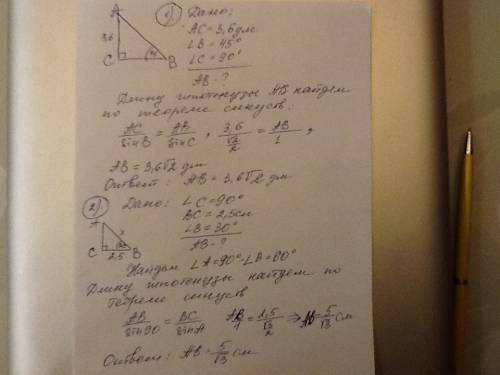 1) Дано:
AC = 3,6 дм
∠B = 45°
∠C = 90°
AB - ?
A
3,6
C
45
B
Длину гипотенузы AB найдем
по теореме синусов:
AC/sinB = AB/sinC, 3,6/(√2/2) = AB/1,
AB = 3,6√2 дм
Ответ: AB = 3,6√2 дм
2) Дано: ∠C = 90°
BC = 2,5 см
∠B = 30°
AB - ?
A
C
2,5
B
Найдем ∠A = 90° - ∠B = 60°
Длину гипотенузы найдем по
теореме синусов
AB/sin90 = BC/sinA AB/1 = 2,5/(√3/2) => AB = 5/√3 см
Ответ: AB = 5/√3 см